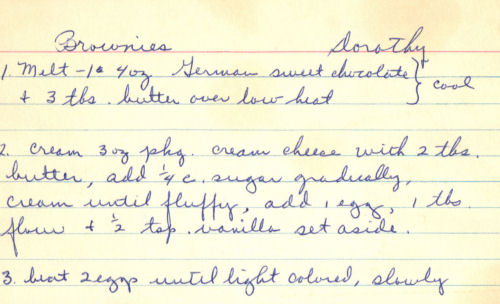 Brownies Dorothy
1. Melt - 1 4 oz German sweet chocolate } cool
+ 3 tbs. butter over low heat
2. Cream 3 oz pkg. cream cheese with 2 tbs.
butter, add ¼ c. sugar gradually,
cream until fluffy, add 1 egg, 1 tbs.
flour + ½ tsp. vanilla set aside.
3. beat 2 eggs until light colored, slowly